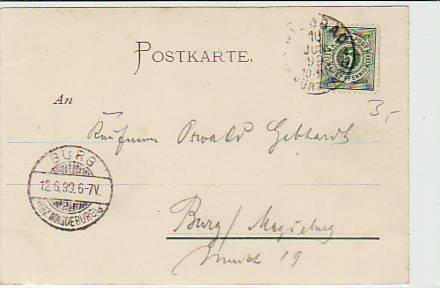 POSTKARTE.
WILDBAD
10
JUN
99
5
3,-
An
Kaufmann Oswald Gebhardt
BURG
12.6.99.6-7V.
(BZ. MAGDEBURG)
Burg / Magdeburg
19